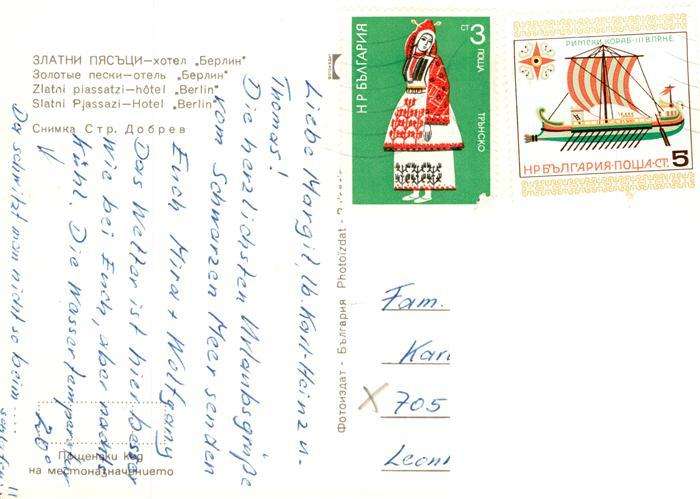 ЗЛАТНИ ПЯСЪЦИ—хотел „Берлин"
Золотые пески—отель „Берлин"
Zlatni piassatzi—hôtel „Berlin"
Slatni Pjassazi-Hotel „Berlin"
Снимка Стр. Добрев
Liebe Margit, lb. Karl-Heinz u.
Thomas!
Die herzlichsten Urlaubsgrüße
vom Schwarzen Meer senden
Euch Mira + Wolfgang
Das Wetter ist hier besser
wie bei Euch, aber nachts
kühl. Die Wassertemperatur
20°
Da schwitzt man nicht so beim
Пощенски код
на местоназначението
Фотоиздат - България Photoizdat -
НР БЪЛГАРИЯ
3 СТ
ПОЩА
ТРЪНСКО
РИМСКИ КОРАБ-III В.ПР.Н.Е.
НР БЪЛГАРИЯ-ПОЩА-СТ. 5
Fam.
Karl
705
Leon